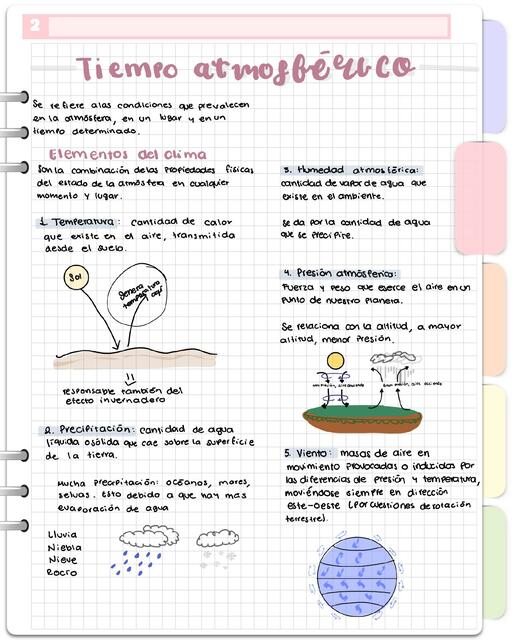 2
Tiempo atmosférico
Se refiere a las condiciones que prevalecen
en la atmósfera, en un lugar y en un
tiempo determinado.
Elementos del clima
Son la combinación de las propiedades físicas
del estado de la atmósfera en cualquier
momento y lugar.
1. Temperatura: cantidad de calor
que existe en el aire, transmitida
desde el suelo.
Sol
Genera
temperatura
aquí
responsable también del
efecto invernadero
2. Precipitación: cantidad de agua
líquida o sólida que cae sobre la superficie
de la tierra.
Mucha precipitación: océanos, mares,
selvas. Esto debido a que hay más
evaporación de agua
Lluvia
Niebla
Nieve
Rocío
3. Humedad atmosférica:
cantidad de vapor de agua que
existe en el ambiente.
Se da por la cantidad de agua
que se precipite.
4. Presión atmosférica:
Fuerza y peso que ejerce el aire en un
punto de nuestro planeta.
Se relaciona con la altitud, a mayor
altitud, menor presión.
5. Viento: masas de aire en
movimiento provocadas o inducidas por
las diferencias de presión y temperatura,
moviéndose siempre en dirección
este-oeste (por cuestiones de rotación
terrestre).